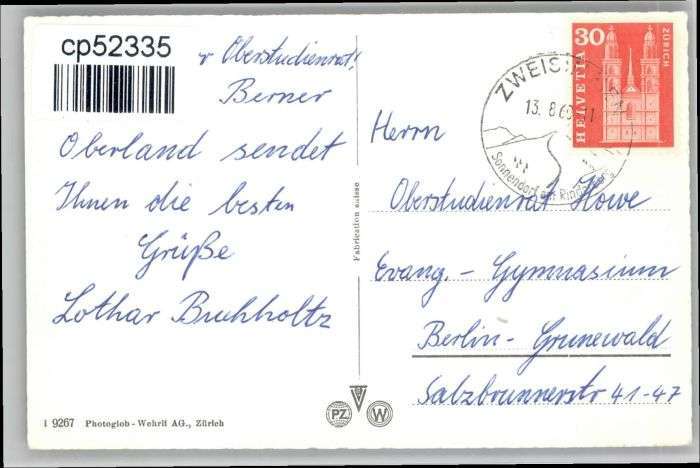 cp52335
r Oberstudienrat!
Berner
Oberland sendet
Ihnen die besten
Grüße
Lothar Buchholtz
Fabrication suisse
30
HELVETIA
ZÜRICH
13. 8.6
Sonnendorf
Herrn
Oberstudienrat Howe
Evang. - Gymnasium
Berlin - Grunewald
Salzbrunnerstr 41-47
1 9267 Photoglob - Wehrli AG., Zürich
P.Z. W